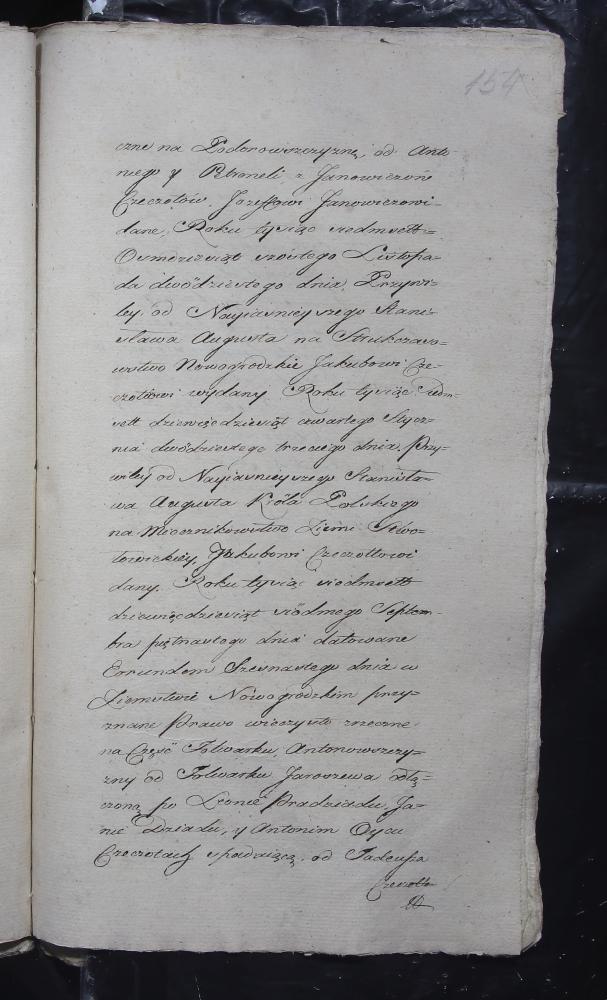 154
czne na Podorowszczyznę, od Anto-
niego y Petroneli z Janowiczow
Czeczotów, Jozeffowi Janowiczowi
dane, Roku tysiąc siedmsett
Osmdziesiąt szóstego Listopa-
da dwódziestego dnia, Przywi-
ley od Nayiasnieyszego Stani-
sława Augusta na Strukczaso-
wstwo Nowogrodzkie Jakubowi Cze-
czottowi wydany Roku tysiąc siedm-
sett dziewięcdziesiąt czwartego Stycz-
nia dwódziestego trzeciego dnia, Przy-
wiley od Nayiasnieyszego Stanisła-
wa Augusta Króla Polskiego
na Miecznikowstwo Ziemi
Jakubowi Czeczottowi
dany. Roku tysiąc siedmsett
dziewięcdziesiąt siódmego Septem-
bra piętnastego dnia datowane
Eorundem Szesnastego dnia w
Ziemstwie Nowogrodzkim przy-
znane Prawo wieczysto zrzeczne
na Część Folwarku, Antonowszczy-
zny od Folwarku Jaroszewa odłą-
czoną po Leonie Pradziadu, Ja-
nie Dziadu, y Antonim Oycu
Czeczotach spadaiącą, od Tadeusza
Czeczotta